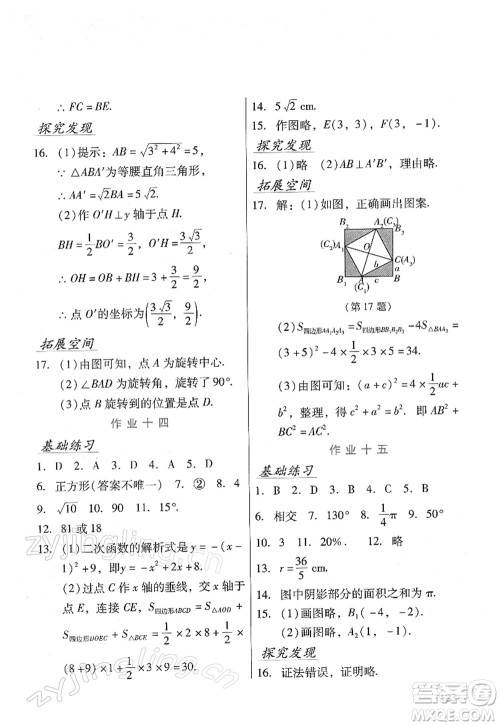 ∴ FC = BE.
探究发现
16. (1)提示：AB = √(3² + 4²) = 5,
∵ △ABA′为等腰直角三角形，
∴ AA′ = √2BA = 5√2.
(2)作 O′H⊥y 轴于点 H.
BH = 1/2 BO′ = 3/2, O′H = 3√3/2.
∴ OH = OB + BH = 9/2.
∴ 点 O′的坐标为(3√3/2, 9/2).
拓展空间
17. (1)由图可知，点 A 为旋转中心.
(2)∠BAD 为旋转角，旋转了 90°.
(3)点 B 旋转到的位置为点 D.
作 业 十 四
基础练习
1. D 2. A 3. D 4. B 5. A
6. 正方形(答案不唯一) 7. ② 8. 4
9. √10 10. 91 11. 15°.
12. 81 或 18
13. (1)二次函数的解析式是 y = -(x -
1)² + 9，即 y = -x² + 2x + 8.
(2)过点 C 作 x 轴的垂线，交 x 轴于
点 E，连接 CE，S四边形ABCD = S△AOD +
S四边形DOEC + S△BCE = 1/2 × 2 × 8 + 1/2 ×
(8 + 9) × 1 + 1/2 × 3 × 9 = 30.
14. 5√2 cm.
15. 作图略，E(3, 3), F(3, -1).
探究发现
16. (1)略 (2)AB⊥A′B′，理由略.
拓展空间
17. 解：(1)如图，正确画出图案.
B₂ A₂(C₁) B₁
(C₂)A₃ O C(A₁)
b a
B₃ A(C₃) c B
(第 17 题)
(2)S四边形AA₁A₂A₃ = S四边形BB₁B₂B₃ - 4S△ABC =
(3 + 5)² - 4 × 1/2 × 3 × 5 = 34.
(3)由图可知，(a + c)² = 4 × 1/2 ac +
b²，整理，得 a² + c² = b². 即，AB² +
BC² = AC².
作 业 十 五
基础练习
1. B 2. A 3. D 4. B 5. D
6. 相交 7. 130° 8. 130° 9. 1/4 π
10. 3 11. 20%. 12. 略
13. r = 36/5 cm.
14. 图中阴影部分的面积之和为 π.
15. (1)画图略，B₁(-4, -2).
(2)画图略，B₂(-1, -1).
探究发现
16. 证法错误，证明略.
zyjingling.com
答案圈
MXQE.COM